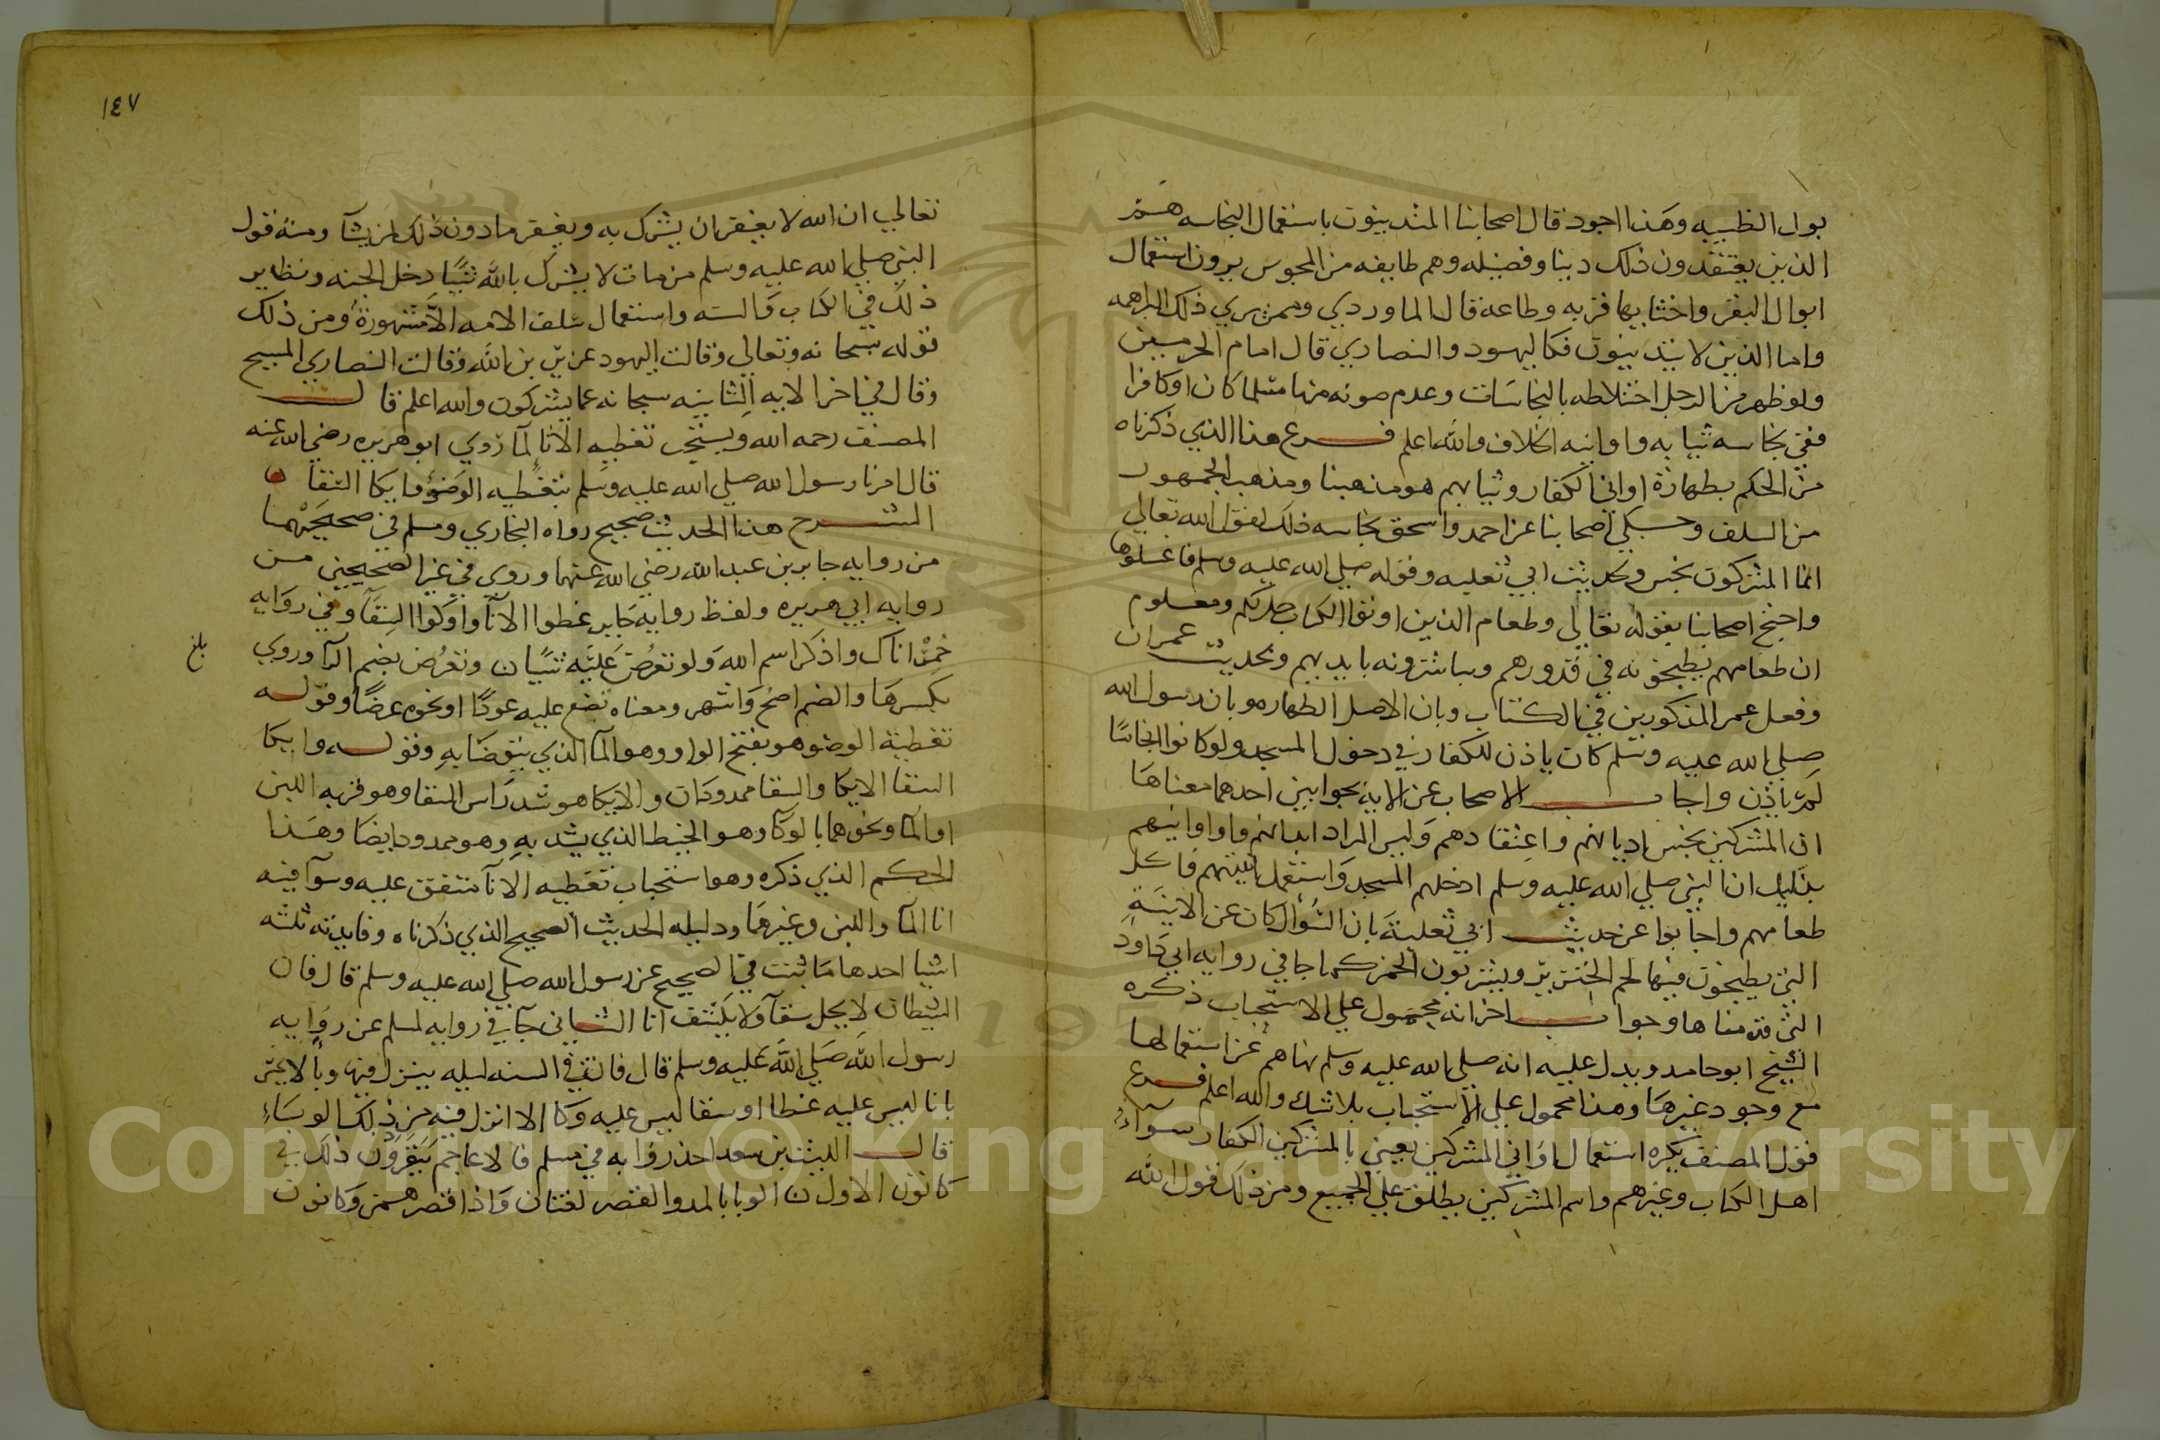 بول الظبيه وهذا اجود قال اصحابنا المتدينون باستعمال النجاسه هم
الذين يعتقدون ذلك دينا وفضيله وهم طايفه من المجوس يرون استعمال
ابوال البقر واخثايها قربه وطاعه قال الماوردي وممن يري ذلك البراهمه
واما الذين لا يتدينون فكاليهود والنصاري قال امام الحرمين
ولو ظهر من الرجل اختلاطه بالنجاسات وعدم صونه منها مسلما كان او كافرا
ففي نجاسه ثيابه واوانيه الخلاف والله اعلم فرع هذا الذي ذكرناه
من الحكم بطهارة اواني الكفار وثيابهم هو مذهبنا ومذهب الجمهور
من السلف وحكي اصحابنا عن احمد واسحق نجاسه ذلك لقول الله تعالي
انما المشركون نجس ولحديث ابي ثعلبه وقوله صلي الله عليه وسلم فاغسلوها
واحتج اصحابنا بقوله تعالي وطعام الذين اوتوا الكتاب حل لكم ومعلوم
ان طعامهم يطبخونه في قدورهم ويباشرونه بايديهم وبحديث عمران
وفعل عمر المذكورين في الكتاب وبان الاصل الطهاره وبان رسول الله
صلي الله عليه وسلم كان ياذن للكفار في دخول المسجد ولو كانوا انجاسا
لم ياذن واجاب الاصحاب عن الاية بجوابين احدهما معناها
ان المشركين نجس اديانهم واعتقادهم وليس المراد ابدانهم واوانيهم
بدليل ان النبي صلي الله عليه وسلم ادخلهم المسجد واستعمل انيتهم واكل
طعامهم واجابوا عن حديث ابي ثعلبة بان السؤال كان عن الانية
التي يطبخون فيها لحم الخنزير ويشربون الخمر كما جا في روايه ابي داود
التي قدمناها وجواب اخر انه محمول علي الاستحباب ذكره
الشيخ ابو حامد ويدل عليه انه صلي الله عليه وسلم نهاهم عن استعمالها
مع وجود غيرها وهذا محمول علي الاستحباب بلا شك والله اعلم فرع
قول المصنف يكره استعمال اواني المشركين يعني بالمشركين الكفار سواء
اهل الكتاب وغيرهم واسم المشركين يطلق علي الجميع ومن ذلك قول الله
١٤٧
تعالي ان الله لا يغفر ان يشرك به ويغفر ما دون ذلك لمن يشآ ومنه قول
النبي صلي الله عليه وسلم من مات لا يشرك بالله شيا دخل الجنه ونظاير
ذلك في الكتاب والسنه واستعمال سلف الامه مشهورة ومن ذلك
قوله سبحانه وتعالي وقالت اليهود عزير بن الله وقالت النصاري المسيح
وقال في اخر الايه الثانيه سبحانه عما يشركون والله اعلم قال
المصنف رحمه الله ويستحب تغطيه الانا لما روي ابو هريره رضي الله عنه
قال امرنا رسول الله صلي الله عليه وسلم بتغطيه الوضو وايكا السقا
الشرح هذا الحديث صحيح رواه البخاري ومسلم في صحيحيهما
من روايه جابر بن عبد الله رضي الله عنهما وروي في غير الصحيحين من
روايه ابي هريره ولفظ روايه جابر غطوا الانا واوكوا السقآ وفي روايه
خمر اناك واذكر اسم الله ولو تعرض عليه شيا ن وتعرض بضم الرآ وروي
بكسرها والضم اصح واشهر ومعناه تضع عليه عودا او نحوه عرضا وقوله
بلغ
تغطية الوضو هو بفتح الواو وهو المآ الذي يتوضا به وقوله وايكا
السقا الايكا والسقا ممدودان والايكا هو شد راس السقا وهو قربه اللبن
او المآ ونحوهما بالوكا وهو الخيط الذي يشد به وهو ممدود ايضا وهذا
الحكم الذي ذكره وهو استحباب تغطيه الانآ متفق عليه وسوآ فيه
انا المآ واللبن وغيرهما ودليله الحديث الصحيح الذي ذكرناه وفايدته ثلثه
اشيا احدها ما ثبت في الصحيح عن رسول الله صلي الله عليه وسلم قال فان
الشيطان لا يحل سقآ ولا يكشف انا الثاني جآ في روايه لمسلم عن روايه
رسول الله صلي الله عليه وسلم قال فان في السنه ليله ينزل فيها وبا لا يمر
بانا ليس عليه غطا او سقا ليس عليه وكا الا انزل فيه من ذلك الوباء
قال الليث بن سعد احد رواته في مسلم فالاعاجم يتقون ذلك في
كانون الاول ن الوبا بالمد والقصر لغتان واذا قصر همز وكانون
Copyright © King Saud University
1957